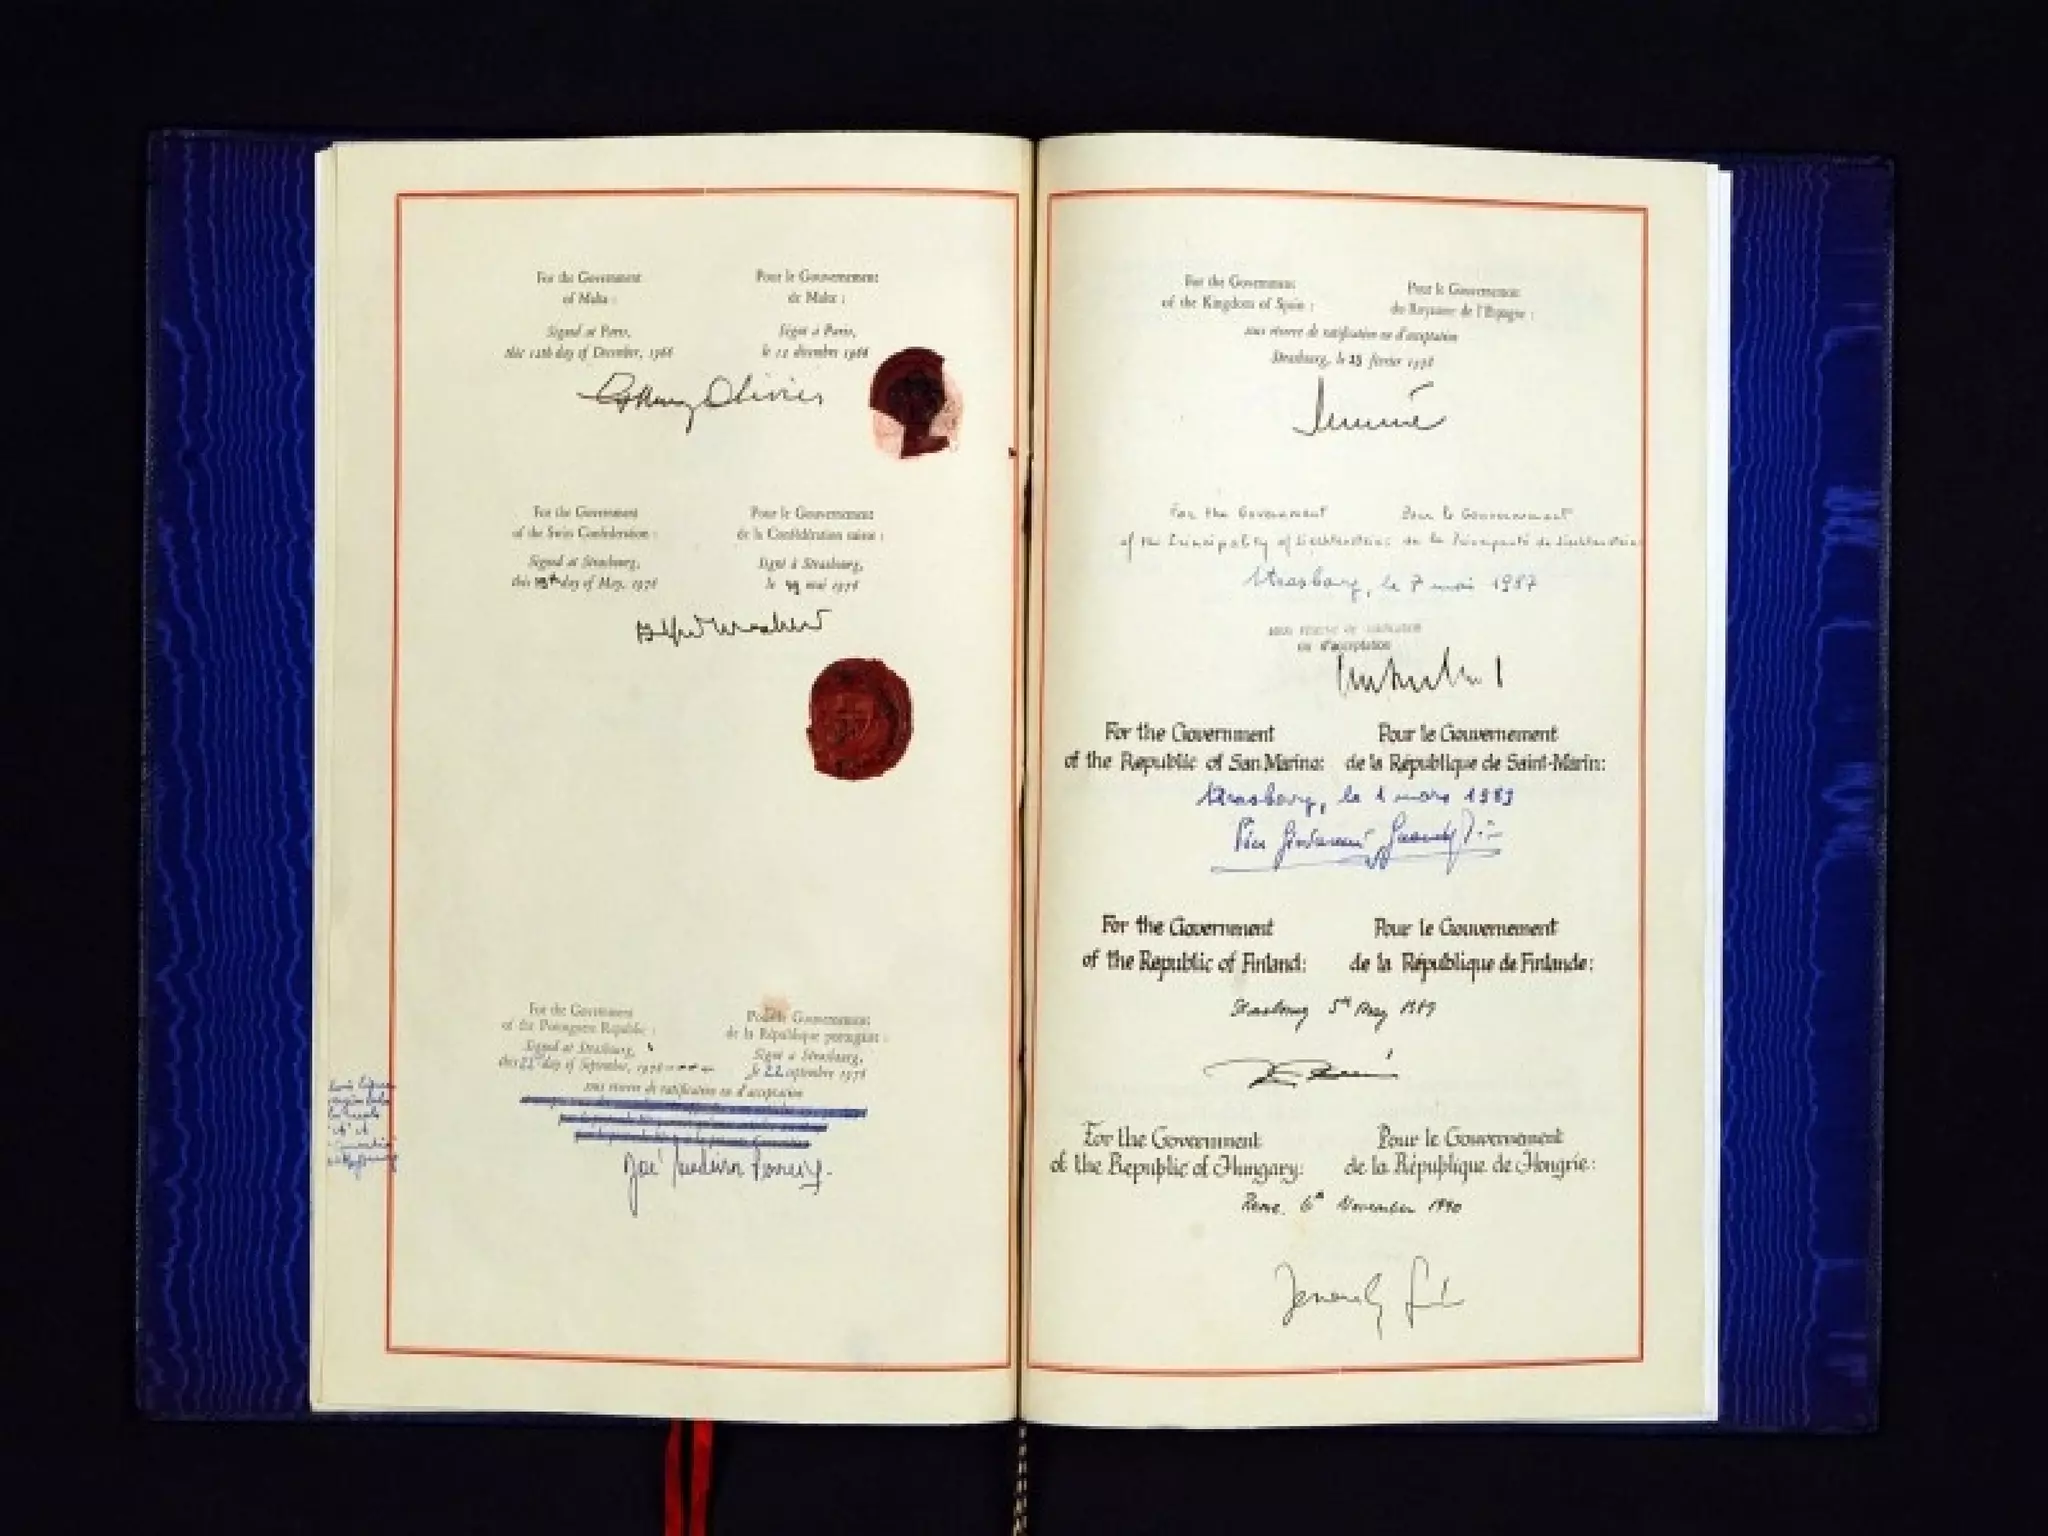 For the Government
of Malta :
Pour le Gouvernement
de Malte :
Signed at Paris,
this 12th day of December, 1966
Signé à Paris,
le 12 décembre 1966
For the Government
of the Swiss Confederation :
Pour le Gouvernement
de la Confédération suisse :
Signed at Strasbourg,
this day of May, 1976
Signé à Strasbourg,
le mai 1976
For the Government
of the Portuguese Republic :
Pour le Gouvernement
de la République portugaise :
Signed at Strasbourg,
this 22nd day of September, 1976
Signé à Strasbourg,
le 22 septembre 1976
sous réserve de ratification ou d'acceptation
For the Government
of the Kingdom of Spain :
Pour le Gouvernement
du Royaume de l'Espagne :
sous réserve de ratification ou d'acceptation
Strasbourg, le 23 février 1978
For the Government
of the Principality of Liechtenstein:
Pour le Gouvernement
de la Principauté de Liechtenstein
Strasbourg, le 7 mai 1987
sous réserve de ratification
ou d'acceptation
For the Government
of the Republic of San Marino:
Pour le Gouvernement
de la République de Saint-Marin:
Strasbourg, le 1 mars 1989
For the Government
of the Republic of Finland:
Pour le Gouvernement
de la République de Finlande:
Strasbourg 5th May 1989
For the Government
of the Republic of Hungary:
Pour le Gouvernement
de la République de Hongrie:
Rome, 6th November 1990